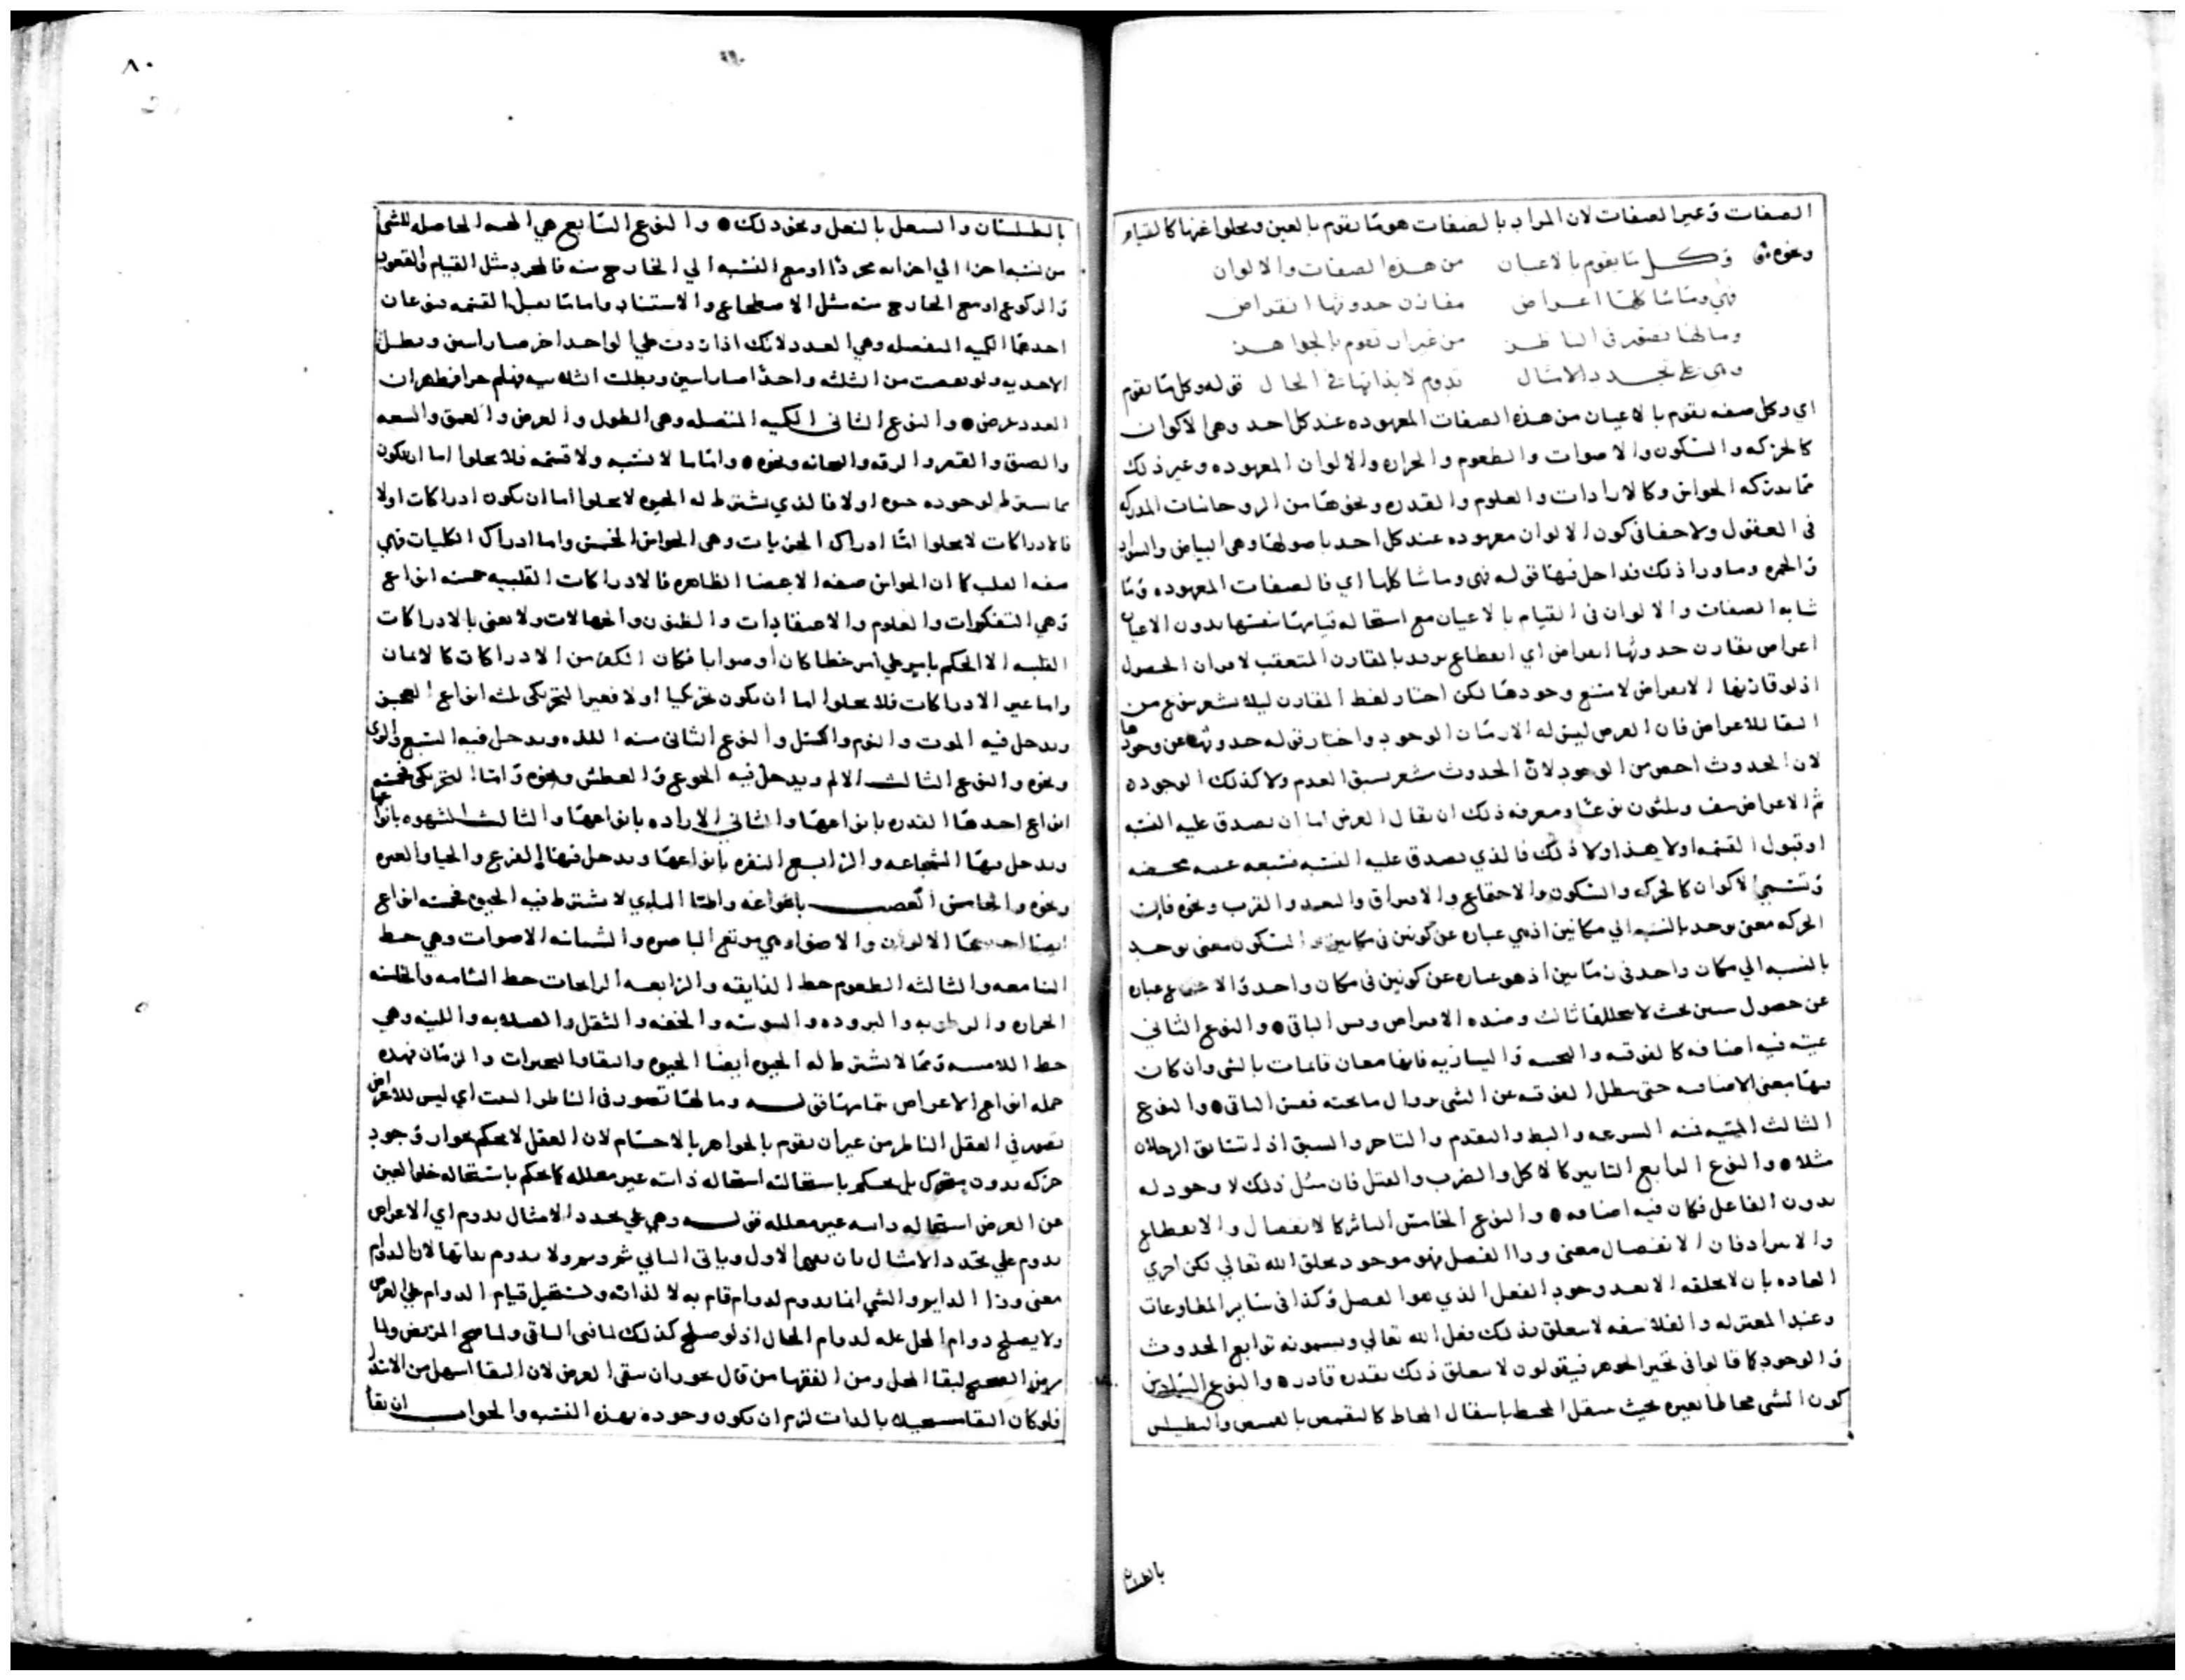 الصفات وغير الصفات لان المراد بالصفات هو ما يقوم بالعين ويخلوا عنها كالقيام
ونحوه وكل ما يقوم بالاعيان من هذه الصفات والالوان
فهي وما شاكلها اعراض مقارن حدوثها انقراض
وما لها تصور في الناظر من غير ان تقوم بالجواهر
وهي على تجدد الامثال تدوم لا بذاتها في الحال قوله وكل ما يقوم
اي وكل صفه يقوم بالاعيان من هذه الصفات المعهوده عند كل احد وهي الاكوان
كالحركه والسكون والاصوات والطعوم والحراره والالوان المعهوده وغير ذلك
مما يدركه الحواس وكالارادات والعلوم والقدره ونحوها من الروحانيات المدركه
في العقول ولا خفا في كون الالوان معهوده عند كل احد باصولها وهي البياض والسواد
والحمره وما ورا ذلك تداخل فيها قوله فهي وما شاكلها اي فالصفات المعهوده وما
شابه الصفات والالوان في القيام بالاعيان مع استحاله قيامها بنفسها بدون الاعيان
اعراض يقارن حدوثها انقراض اي انقطاع يريد بالمقارن المتعقب لا قران الحصول
اذ لو قارنها الانقراض لامتنع وجودها لكن اختار لفظ المقارن ليلا يشعر بنوع من
البقا للاعراض فان العرض ليس له الا زمان الوجود واختار قوله حدوثها عن وجودها
لان الحدوث اخص من الوجود لان الحدوث مشعر بسبق العدم ولا كذلك الوجود
ثم الاعراض نيف وثلثون نوعا ومعرفه ذلك ان يقال العرض اما ان يصدق عليه النسبه
او قبول القسمه اولا هذا ولا ذلك فالذي يصدق عليه النسبه فسبعه محضه
وتسمي الاكوان كالحركه والسكون والاجتماع والافتراق والبعد والقرب ونحوه فان
الحركه معنى يوجد بالنسبه الي مكانين اذ هي عباره عن كونين في مكانين والسكون معنى يوجد
بالنسبه الي مكان واحد في زمانين اذ هو عباره عن كونين في مكان واحد والاجتماع عباره
عن حصول بحيث لا يتخللهما ثالث وضده الافتراق وقس الباقي والنوع الثاني
فيه اضافه كالفوقيه والتحتيه واليساريه فانها معان قايمات بالشي وان كان
فيها معنى الاضافه حتى يبطل الفوقيه عن الشي بزوال ما تحته فقس الباقي والنوع
الثالث السرعه والبط والتقدم والتاخر والسبق اذا تسابق الرجلان
مثلا والنوع الرابع التاثير كالاكل والضرب والقتل فان مثل ذلك لا وجود له
بدون الفاعل فكان فيه اضافه والنوع الخامس التاثر كالانفصال والانقطاع
فان الانفصال معنى ورا الفصل فهو موجود بخلق الله تعالي لكن اجري
العاده بان لا يخلقه الا بعد وجود الفعل الذي هو الفصل وكذا في ساير المطاوعات
وعند المعتزله والفلاسفه لا يتعلق بذلك فعل الله تعالي ويسمونه توابع الحدوث
والوجود كما قالوا في تحيز الجوهر فيقولون لا يتعلق ذلك بقدره قادر والنوع السادس
كون الشي محاطا بغيره بحيث ينتقل المحيط بانتقال المحاط كالتقمص بالقميص والتطيلس
بالطيلسان
بالطيلسان والتنعل بالنعل ونحو ذلك والنوع السابع هي الهيه الحاصله للشي
من نسبه اجزا الي اجزايه مجردا او مع النسبه الي الخارج منه فالمجرد مثل القيام والقعود
والركوع او مع الخارج منه مثل الاضطجاع والاستناد واما ما يقبل القسمه فنوعان
احدهما الكميه المنفصله وهي العدد لانك اذا زدت علي الواحد اخر صار اثنين وبطل
الاحديه ولو نقصت من الثلثه واحدا صار اثنين وبطلت الثلاثيه فظهر ان
العدد عرض والنوع الثاني الكميه المتصله وهي الطول والعرض والعمق والسعه
والضيق والقصر والرقه ونحوه واما ما لا نسبه ولا قسمه فلا يخلوا اما ان يكون
مما يشترط لوجوده حيوه اولا فالذي يشترط له الحيوه لا يخلوا اما ان يكون ادراكات اولا
فالادراكات لا يخلوا اما ادراك الجزيات وهي الحواس الخمس واما ادراك الكليات فهي
صفه القلب كما ان الحواس صفه الاعضا الظاهره فالادراكات القلبيه خمسه انواع
وهي التفكرات والعلوم والاعتقادات والظنون والجهالات ولا يعنى بالادراكات
القلبيه الا الحكم بامر علي امر خطا كان او صوابا فكان الكفر من الادراكات كالايمان
واما غير الادراكات فلا يخلوا اما ان يكون تحريكيا اولا فغير التحريكي ثلثه انواع العجز
ويدخل فيه الموت والنوم والكسل والنوع الثاني منه اللذه ويدخل فيه الشبع والري
ونحوه والنوع الثالث الالم ويدخل فيه الجوع والعطش ونحوه واما التحريكي فخمسه
انواع احدها القدره بانواعها والثاني الاراده بانواعها والثالث الشهوه بانواعها
ويدخل فيها الشجاعه والرابع النفره بانواعها ويدخل فيها الفزع والحيا والغيره
ونحوه والخامس الغضب بانواعه واما الذي لا يشترط فيه الحيوه فخمسه انواع
ايضا احدها الالوان والاضوا وهي موقع الباصره والثانيه الاصوات وهي حظ
السامعه والثالثه الطعوم حظ الذايقه والرابعه الرايحات حظ الشامه والخامسه
الحراره والرطوبه والبروده واليبوسه والخفه والثقل والصلابه واللينه وهي
حظ اللامسه ومما لا يشترط له الحيوه ايضا الحيوه والبقا والزمان فهذه
جمله انواع الاعراض بتمامها قوله وما لها تصور في الناظر البيت اي ليس للاعراض
تصور في العقل الناظر من غير ان يقوم بالجواهر بالاجسام لان العقل لا يحكم بجواز وجود
حركه بدون متحرك بل يحكم باستحالته استحاله ذاته غير معلله كما يحكم باستحاله خلو العين
عن العرض استحاله ذاتيه غير معلله قوله وهي علي تجدد الامثال تدوم اي الاعراض
تدوم علي تجدد الامثال بان يفني الاول وياتي الثاني ثم وثم ولا يدوم بذاتها لان الدوام
معنى ورا الدايم والشي انما يدوم لدوام قام به لا لذاته ويستحيل قيام الدوام علي العرض
ولا يصلح دوام المحل عله لدوام الحال اذ لو صلح كذلك لما فني الباقي ولما صح المريض ولما
مرض الصحيح لبقا المحل ومن الفقها من قال يجوز ان يبقي العرض لان البقا اسهل من الابتدا
فلو كان البقا مستحيلا بالذات لزم ان يكون وجوده بهذه النسبه والجواب ان بقا
٨٠